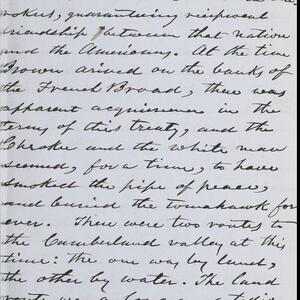 rokees, guaranteeing reciprocal
friendship between that nation
and the Americans. At the time
Brown arived on the banks of
the French Broad, there was
apparent acquiescence in the
terms of this treaty, and the
Cherokee and the white man
seemed, for a time, to have
smoked the pipe of peace,
and buried the tomahawk for
ever. There were two routes to
the Cumberland valley at this
time: the one way by land,
the other by water. The land
route was a long and